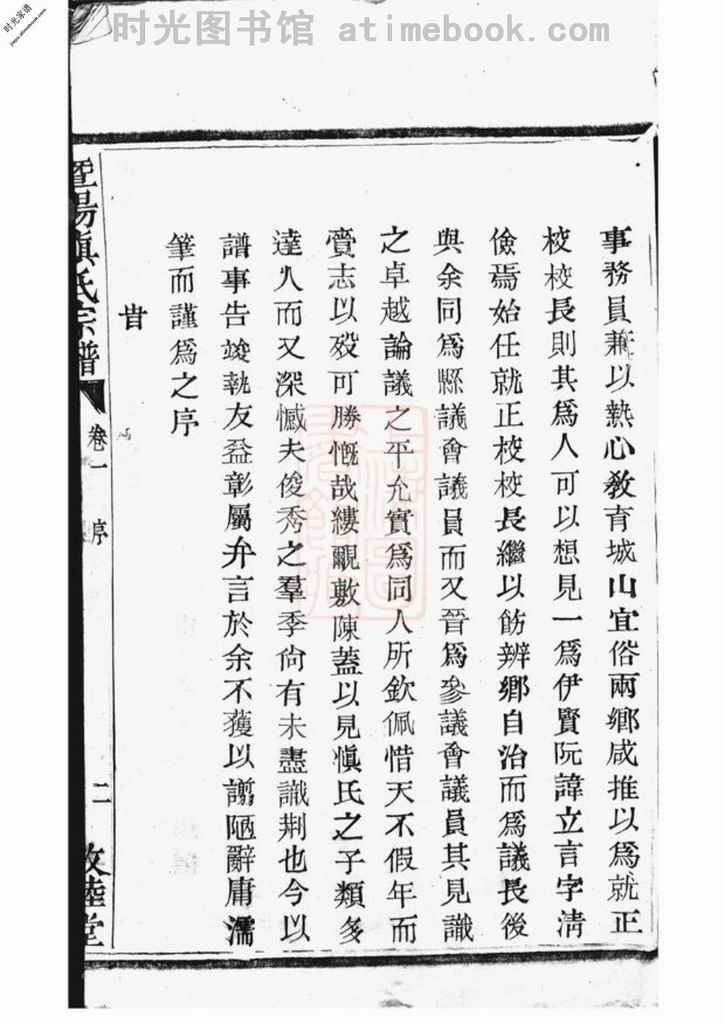 时光图书馆 atimebook.com
时光家谱
事務員兼以熱心教育城山宜俗兩鄉咸推以爲就正
校校長則其爲人可以想見一爲伊賢阮諱立言字淸
儉焉始任就正校校長繼以飭辨鄉自治而爲議長後
與余同爲縣議會議員而又晉爲參議會議員其見識
之卓越論議之平允實爲同人所欽佩惜天不假年而
賫志以歿可勝慨哉縷覼敷陳蓋以見愼氏之子類多
達人而又深憾夫俊秀之羣季尙有未盡識荆也今以
譜事告竣執友益彰屬弁言於余不獲以謭陋辭庸濡
筆而謹爲之序
旹
暨陽愼氏宗譜
卷一 序
二
敦睦堂